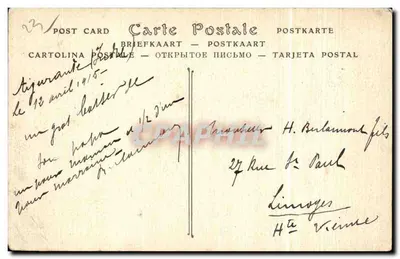 23
POST CARD Carte Postale POSTKARTE
BRIEFKAART — POSTKAART
CARTOLINA POSTALE — ОТКРЫТОЕ ПИСЬМО — TARJETA POSTAL
Aigurande Indre
le 12 avril 1915
un gros baiser de
ton papa
un pour maman et 1/2 d'un
pour marraine
CPARAMA
Monsieur H. Berlamont fils
27 Rue St Paul
Limoges
Hte Vienne